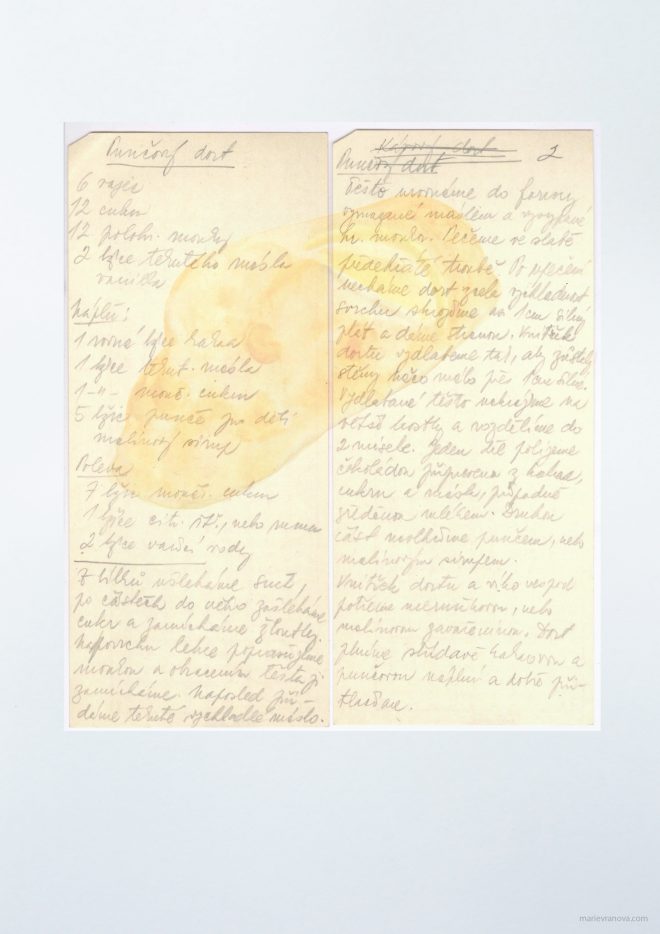 Punčový dort
6 vajec
12 cukru
12 polohr. mouky
2 lžíce tekutého másla
vanilka
Náplň:
1 rovná lžíce kakaa
1 lžíce tekut. másla
1 -"- mouč. cukru
5 lžic punče pro děti
malinový sirup
Poleva
7 lžic mouč. cukru
1 lžíce citr. šť., nebo rumu
2 lžíce vařící vody
Z bílků ušleháme sníh,
po částech do něho zašleháme
cukr a zamícháme žloutky.
Na povrchu lehce poprašujeme
moukou a obracením těsta ji
zamícháme. Naposled při-
dáme tekuté vychladlé máslo.
Kávový dort 2
Punčový dort
Těsto urovnáme do formy
vymazané máslem a vysypané
hr. moukou. Pečeme ve slabě
předehřáté troubě. Po upečení
necháme dort zcela vychladnout
svrchu skrojíme as 1 cm silný
plát a dáme stranou. Vnitřek
dortu vydlabeme tak, aby zůstaly
stěny něco málo přes 1 cm silné.
Vydlabané těsto nakrájíme na
větší kostky a rozdělíme do
2 misek. Jeden díl polijeme
čokoládou připravenou z kakaa,
cukru a másla, případně
zředěnou mlékem. Druhou
část navlhčíme punčem, nebo
malinovým sirupem.
Vnitřek dortu a víko vespod
potřeme meruňkovou, nebo
malinovou zavařeninou. Dort
plníme střídavě kakaovou a
punčovou náplní a dobře při-
tlačíme.
marievranova.com